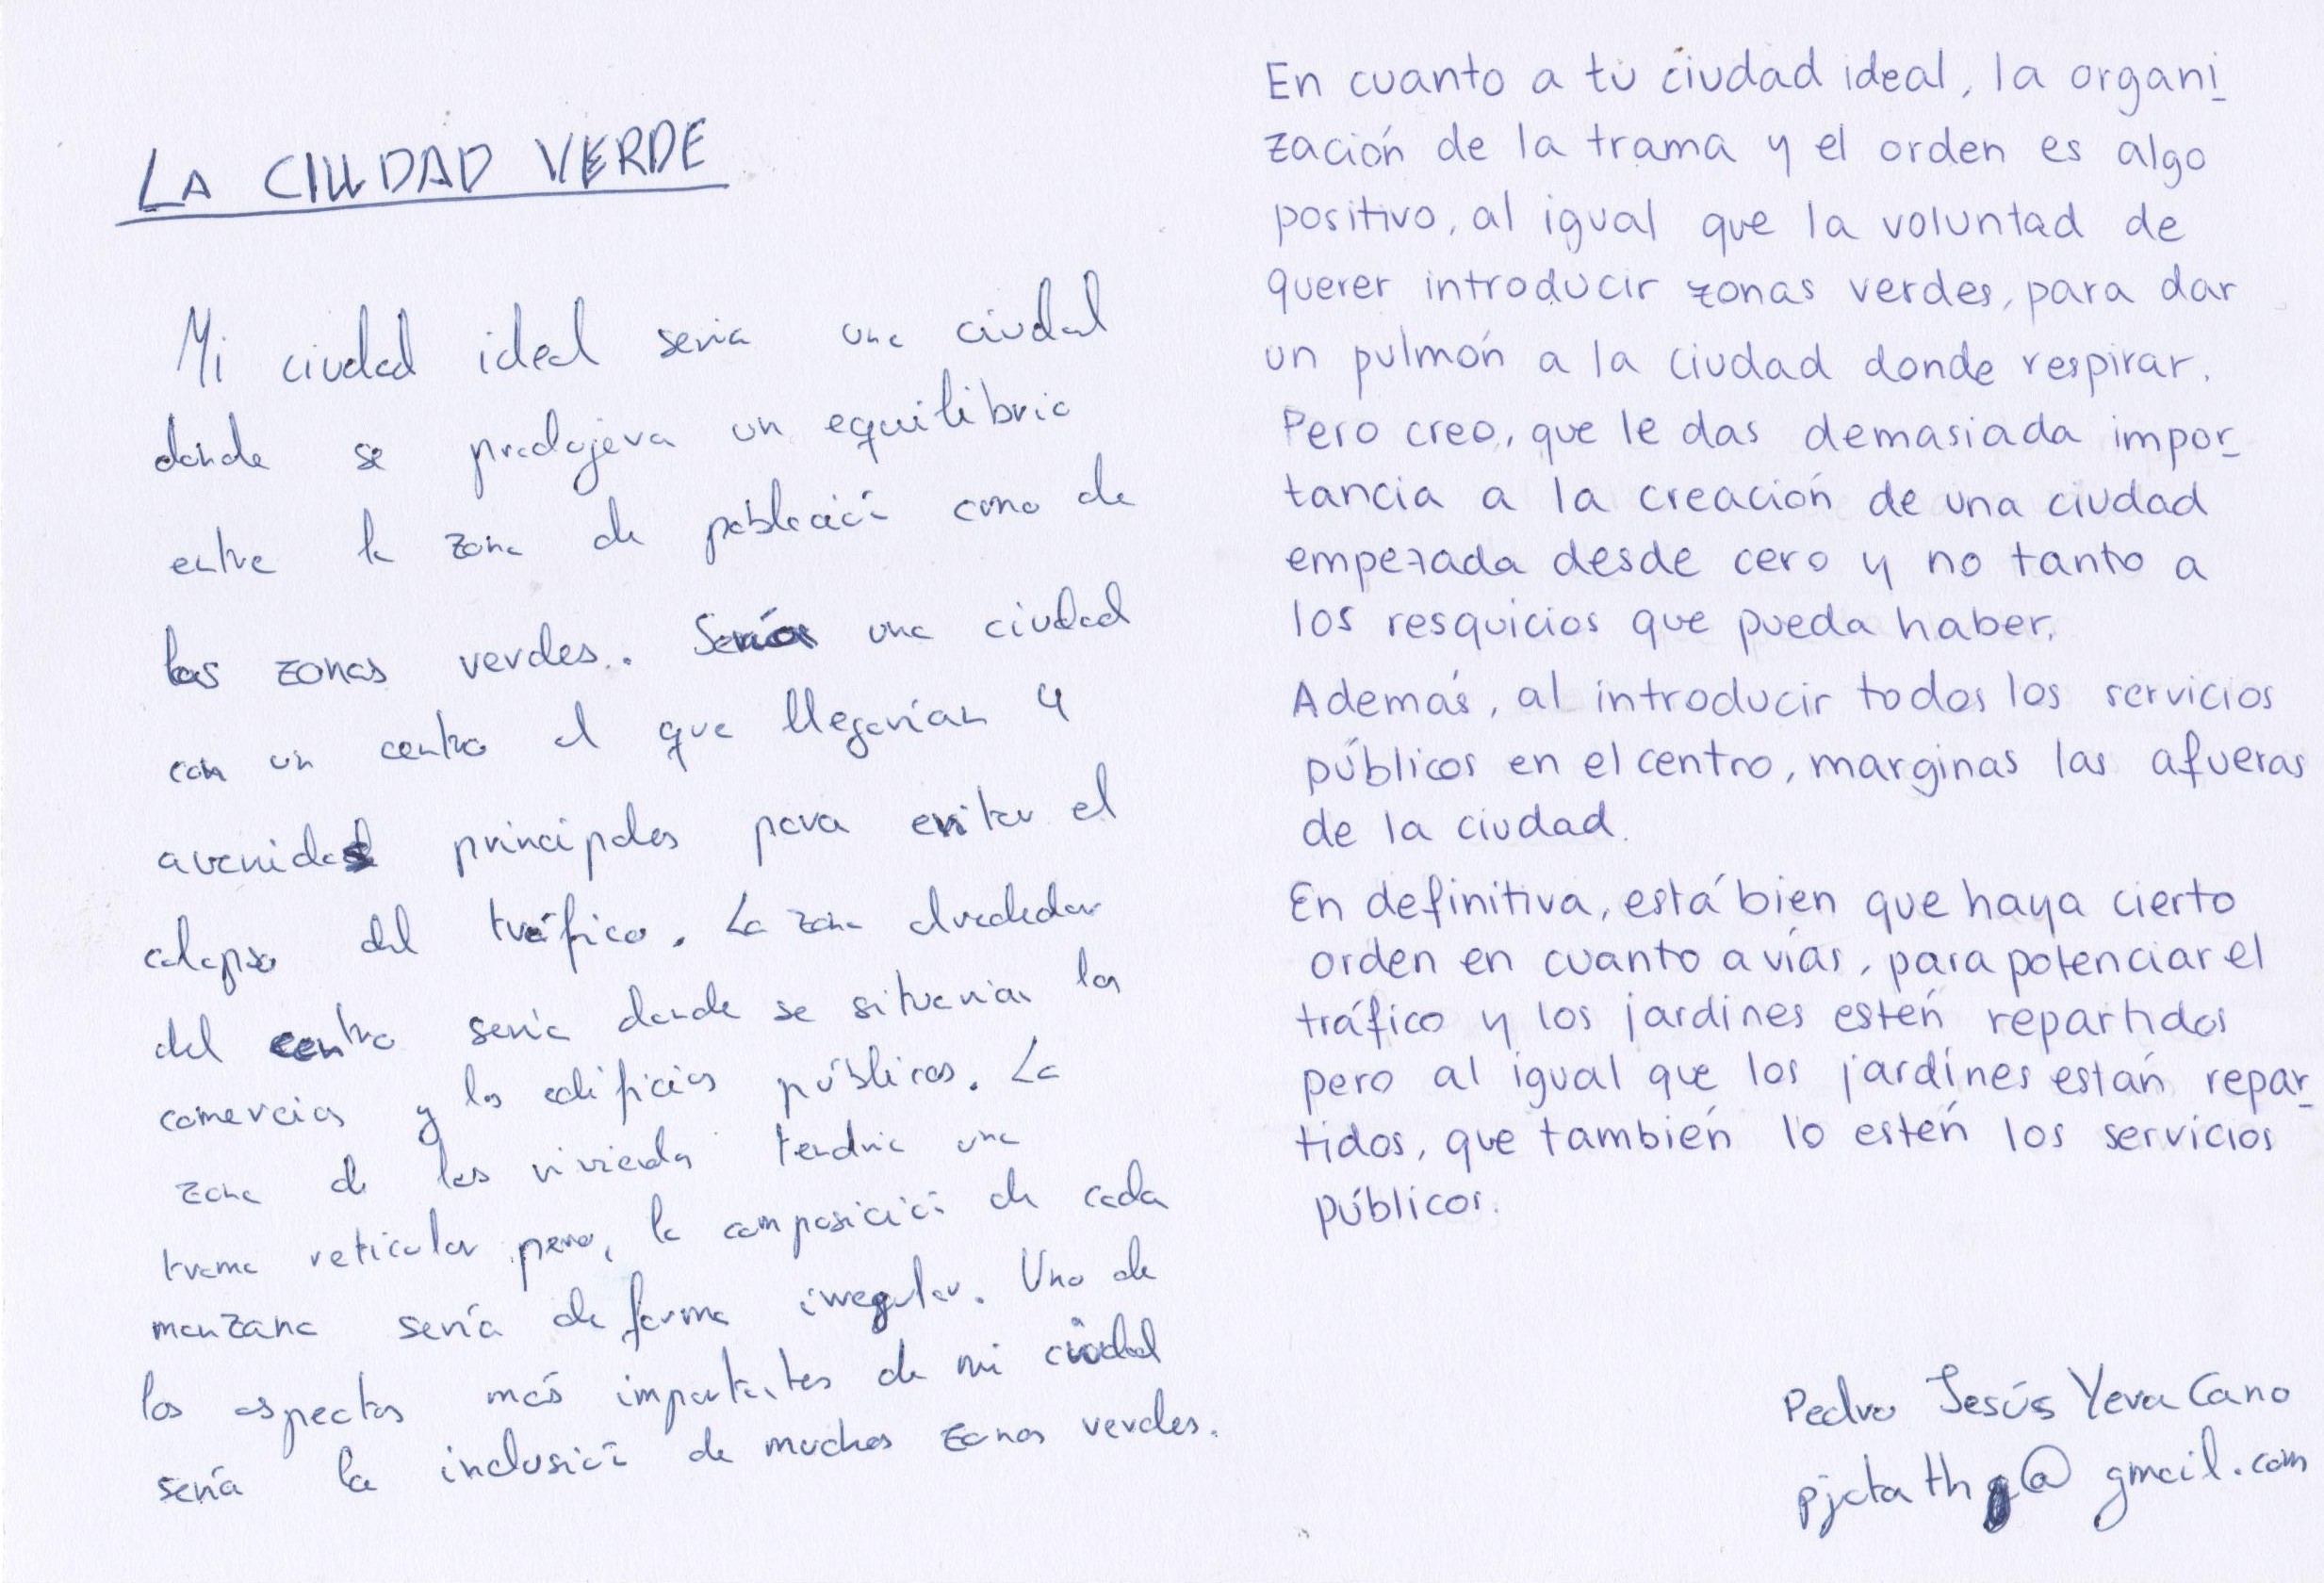 LA CIUDAD VERDE
Mi ciudad ideal seria una ciudad
donde se produjera un equilibrio
entre la zona de població como de
las zonas verdes. Sería una ciudad
con un centro al que llegarían 4
avenidas principales para evitar el
colapso del tráfico. La zona alrededor
del centro sería donde se situarían los
comercios y los edificios públicos. La
zona de las vivienda tendria una
trama reticular pero, la composició de cada
manzana sería de forma irregular. Uno de
los aspectos más importantes de mi ciudad
sería la inclusió de muchas zonas verdes.
En cuanto a tu ciudad ideal, la organi-
zación de la trama y el orden es algo
positivo, al igual que la voluntad de
querer introducir zonas verdes, para dar
un pulmón a la ciudad donde respirar.
Pero creo, que le das demasiada impor-
tancia a la creación de una ciudad
empezada desde cero y no tanto a
los resquicios que pueda haber.
Además, al introducir todos los servicios
públicos en el centro, marginas las afueras
de la ciudad.
En definitiva, está bien que haya cierto
orden en cuanto a vías, para potenciar el
tráfico y los jardines estén repartidos
pero al igual que los jardínes están repar-
tidos, que también lo estén los servicios
públicos.
Pedro Jesús Yeva Cano
@gmail.com